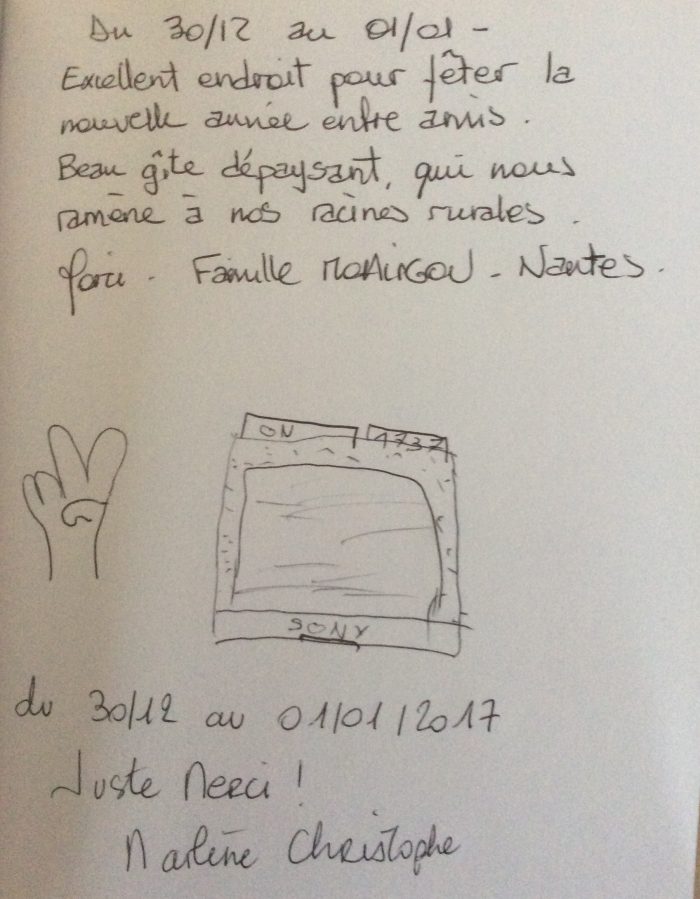 Du 30/12 au 01/01 -
Excellent endroit pour fêter la
nouvelle année entre amis.
Beau gîte dépaysant, qui nous
ramène à nos racines rurales.
Famille - Nantes.
ON
1737
SONY
du 30/12 au 01/01/2017
Juste Merci !
Marlène Christophe